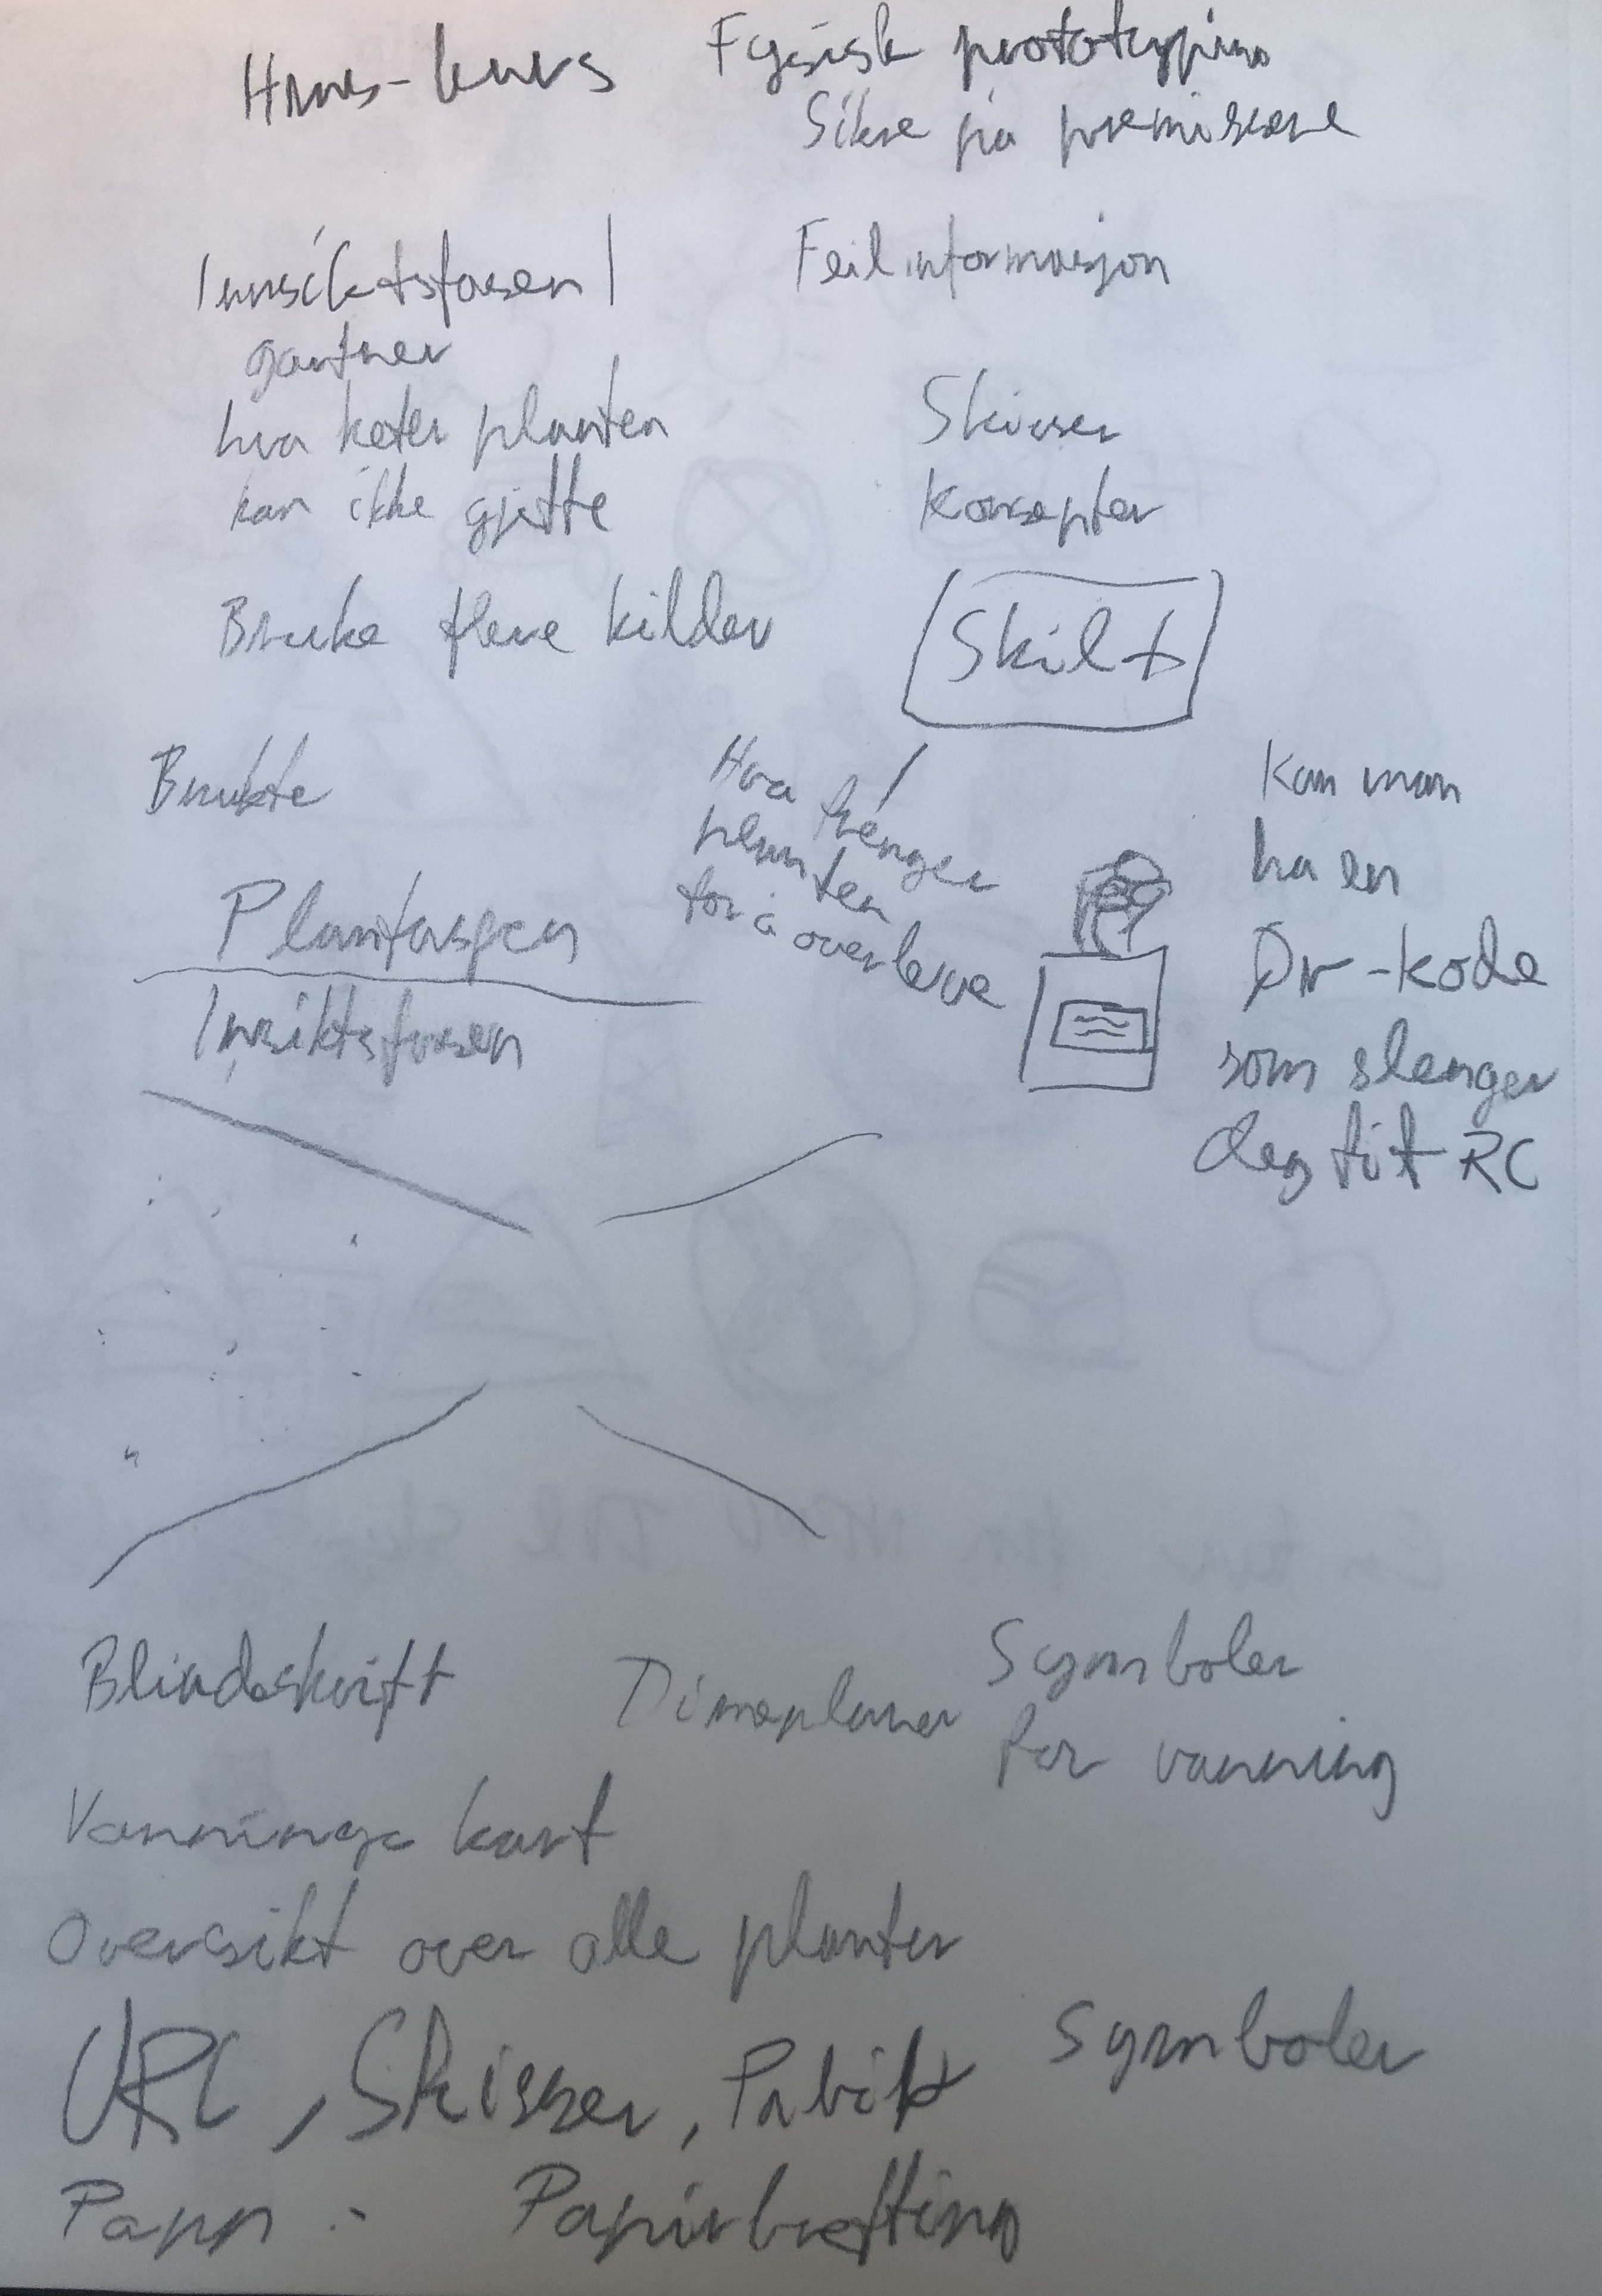 Hms-kurs
Fysisk prototyping
Sikre på premissene
Innsiktsfasen
gartner
hva heter planten
kan ikke gjette
Bruke flere kilder
Feilinformasjon
Skisser
Konsepter
Skilt
Brukte
Plantasjen
Insiktsfasen
Hva trenger
planten
for å overleve
Kan man
ha en
Qr-kode
som slenger
deg tit RC
Blindeskrift
Timeplaner
Symboler
for vanning
Vannings kart
Oversikt over alle planter
Symboler
Skisser,
Papp
Papirbretting